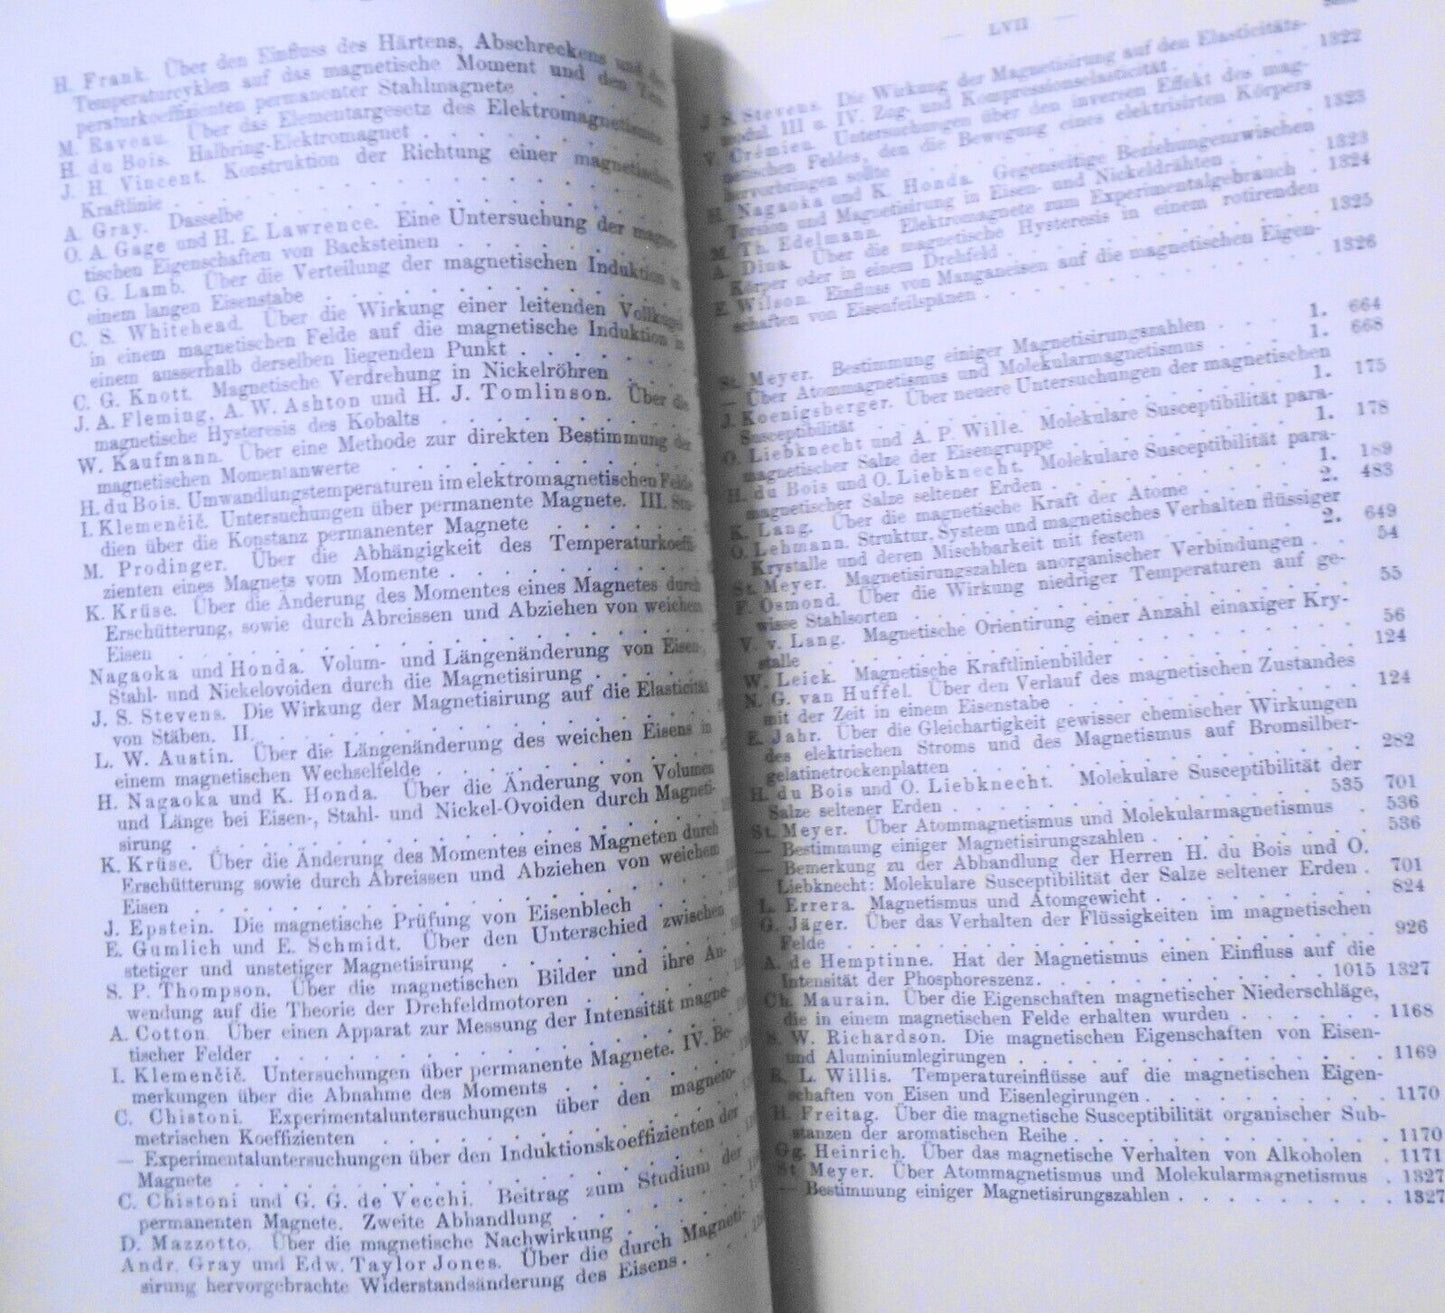 H. Frank. Über den Einfluss des Härtens, Abschreckens und der
Temperaturcyklen auf das magnetische Moment und den Tem-
peraturkoeffizienten permanenter Stahlmagnete . . . .
M. Raveau. Über das Elementargesetz des Elektromagnetismus
H. du Bois. Halbring-Elektromagnet . . . . . .
J. H. Vincent. Konstruktion der Richtung einer magnetischen
Kraftlinie . . . . . . . .
A. Gray. Dasselbe . . . . . . . .
O. A. Gage und H. E. Lawrence. Eine Untersuchung der magne-
tischen Eigenschaften von Backsteinen . . . . .
C. G. Lamb. Über die Verteilung der magnetischen Induktion in
einem langen Eisenstabe . . . . . . .
C. S. Whitehead. Über die Wirkung einer leitenden Vollkugel
in einem magnetischen Felde auf die magnetische Induktion in
einem ausserhalb derselben liegenden Punkt . . . .
C. G. Knott. Magnetische Verdrehung in Nickelröhren . .
J. A. Fleming, A. W. Ashton und H. J. Tomlinson. Über die
magnetische Hysteresis des Kobalts . . . . . .
W. Kaufmann. Über eine Methode zur direkten Bestimmung der
magnetischen Momentanwerte . . . . . . .
H. du Bois. Umwandlungstemperaturen im elektromagnetischen Felde
I. Klemenčič. Untersuchungen über permanente Magnete. III. Stu-
dien über die Konstanz permanenter Magnete . . . .
M. Prodinger. Über die Abhängigkeit des Temperaturkoeffi-
zienten eines Magnets vom Momente . . . . . .
K. Krüse. Über die Änderung des Momentes eines Magnetes durch
Erschütterung, sowie durch Abreissen und Abziehen von weichen
Eisen . . . . . . . . . .
Nagaoka und Honda. Volum- und Längenänderung von Eisen-,
Stahl- und Nickelovoiden durch die Magnetisirung . . . .
J. S. Stevens. Die Wirkung der Magnetisirung auf die Elasticität
von Stäben. II. . . . . . . . . .
L. W. Austin. Über die Längenänderung des weichen Eisens in
einem magnetischen Wechselfelde . . . . . . .
H. Nagaoka und K. Honda. Über die Änderung von Volumen
und Länge bei Eisen-, Stahl- und Nickel-Ovoiden durch Magneti-
sirung . . . . . . . . . .
K. Krüse. Über die Änderung des Momentes eines Magneten durch
Erschütterung sowie durch Abreissen und Abziehen von weichem
Eisen . . . . . . . . . .
J. Epstein. Die magnetische Prüfung von Eisenblech . . .
E. Gumlich und E. Schmidt. Über den Unterschied zwischen
stetiger und unstetiger Magnetisirung . . . . . .
S. P. Thompson. Über die magnetischen Bilder und ihre An-
wendung auf die Theorie der Drehfeldmotoren . . . .
A. Cotton. Über einen Apparat zur Messung der Intensität magne-
tischer Felder . . . . . . . . .
I. Klemenčič. Untersuchungen über permanente Magnete. IV. Be-
merkungen über die Abnahme des Moments . . . . .
C. Chistoni. Experimentaluntersuchungen über den magneto-
metrischen Koeffizienten . . . . . . . .
— Experimentaluntersuchungen über den Induktionskoeffizienten der
Magnete . . . . . . . . . .
C. Chistoni und G. G. de Vecchi. Beitrag zum Studium der
permanenten Magnete. Zweite Abhandlung . . . . .
D. Mazzotto. Über die magnetische Nachwirkung . . . .
Andr. Gray und Edw. Taylor Jones. Über die durch Magneti-
sirung hervorgebrachte Widerstandsänderung des Eisens . . .
— LVII —
J. S. Stevens. Die Wirkung der Magnetisirung auf den Elasticitäts-
modul. III u. IV. Zug- und Kompressionselasticität . . . 1322
V. Crémieu. Untersuchungen über den inversen Effekt des mag-
netischen Feldes, den die Bewegung eines elektrisirten Körpers
hervorbringen sollte . . . . . . . 1323
H. Nagaoka und K. Honda. Gegenseitige Beziehungen zwischen
Torsion und Magnetisirung in Eisen- und Nickeldrähten . . 1323
M. Th. Edelmann. Elektromagnete zum Experimentalgebrauch . 1324
A. Dina. Über die magnetische Hysteresis in einem rotirenden
Körper oder in einem Drehfeld . . . . . . 1325
E. Wilson. Einfluss von Manganeisen auf die magnetischen Eigen-
schaften von Eisenfeilspänen . . . . . . . 1326
St. Meyer. Bestimmung einiger Magnetisirungszahlen . . . 1. 664
— Über Atommagnetismus und Molekularmagnetismus . . . 1. 668
J. Koenigsberger. Über neuere Untersuchungen der magnetischen
Susceptibilität . . . . . . . . 1. 175
O. Liebknecht und A. P. Wille. Molekulare Susceptibilität para-
magnetischer Salze der Eisengruppe . . . . . 1. 178
H. du Bois und O. Liebknecht. Molekulare Susceptibilität para-
magnetischer Salze seltener Erden . . . . . 1. 189
K. Lang. Über die magnetische Kraft der Atome . . . . 2. 483
O. Lehmann. Struktur, System und magnetisches Verhalten flüssiger
Krystalle und deren Mischbarkeit mit festen . . . . 2. 649
St. Meyer. Magnetisirungszahlen anorganischer Verbindungen . . 54
F. Osmond. Über die Wirkung niedriger Temperaturen auf ge-
wisse Stahlsorten . . . . . . . . 55
V. v. Lang. Magnetische Orientirung einer Anzahl einaxiger Kry-
stalle . . . . . . . . . . 56
W. Leick. Magnetische Kraftlinienbilder . . . . . . 124
N. G. van Huffel. Über den Verlauf des magnetischen Zustandes
mit der Zeit in einem Eisenstabe . . . . . . 124
E. Jahr. Über die Gleichartigkeit gewisser chemischer Wirkungen
des elektrischen Stroms und des Magnetismus auf Bromsilber-
gelatinetrockenplatten . . . . . . . . 282
H. du Bois und O. Liebknecht. Molekulare Susceptibilität der
Salze seltener Erden . . . . . . . 535 701
St. Meyer. Über Atommagnetismus und Molekularmagnetismus . 536
— Bestimmung einiger Magnetisirungszahlen . . . . . 536
— Bemerkung zu der Abhandlung der Herren H. du Bois und O.
Liebknecht: Molekulare Susceptibilität der Salze seltener Erden . 701
L. Errera. Magnetismus und Atomgewicht . . . . . 824
G. Jäger. Über das Verhalten der Flüssigkeiten im magnetischen
Felde . . . . . . . . . . 926
A. de Hemptinne. Hat der Magnetismus einen Einfluss auf die
Intensität der Phosphoreszenz . . . . . . 1015 1327
Ch. Maurain. Über die Eigenschaften magnetischer Niederschläge,
die in einem magnetischen Felde erhalten wurden . . . . 1168
S. W. Richardson. Die magnetischen Eigenschaften von Eisen-
und Aluminiumlegirungen . . . . . . . . 1169
R. L. Willis. Temperatureinflüsse auf die magnetischen Eigen-
schaften von Eisen und Eisenlegirungen . . . . . 1170
H. Freitag. Über die magnetische Susceptibilität organischer Sub-
stanzen der aromatischen Reihe . . . . . . . 1170
Gg. Heinrich. Über das magnetische Verhalten von Alkoholen . 1171
St. Meyer. Über Atommagnetismus und Molekularmagnetismus . 1327
— Bestimmung einiger Magnetisirungszahlen . . . . . 1327